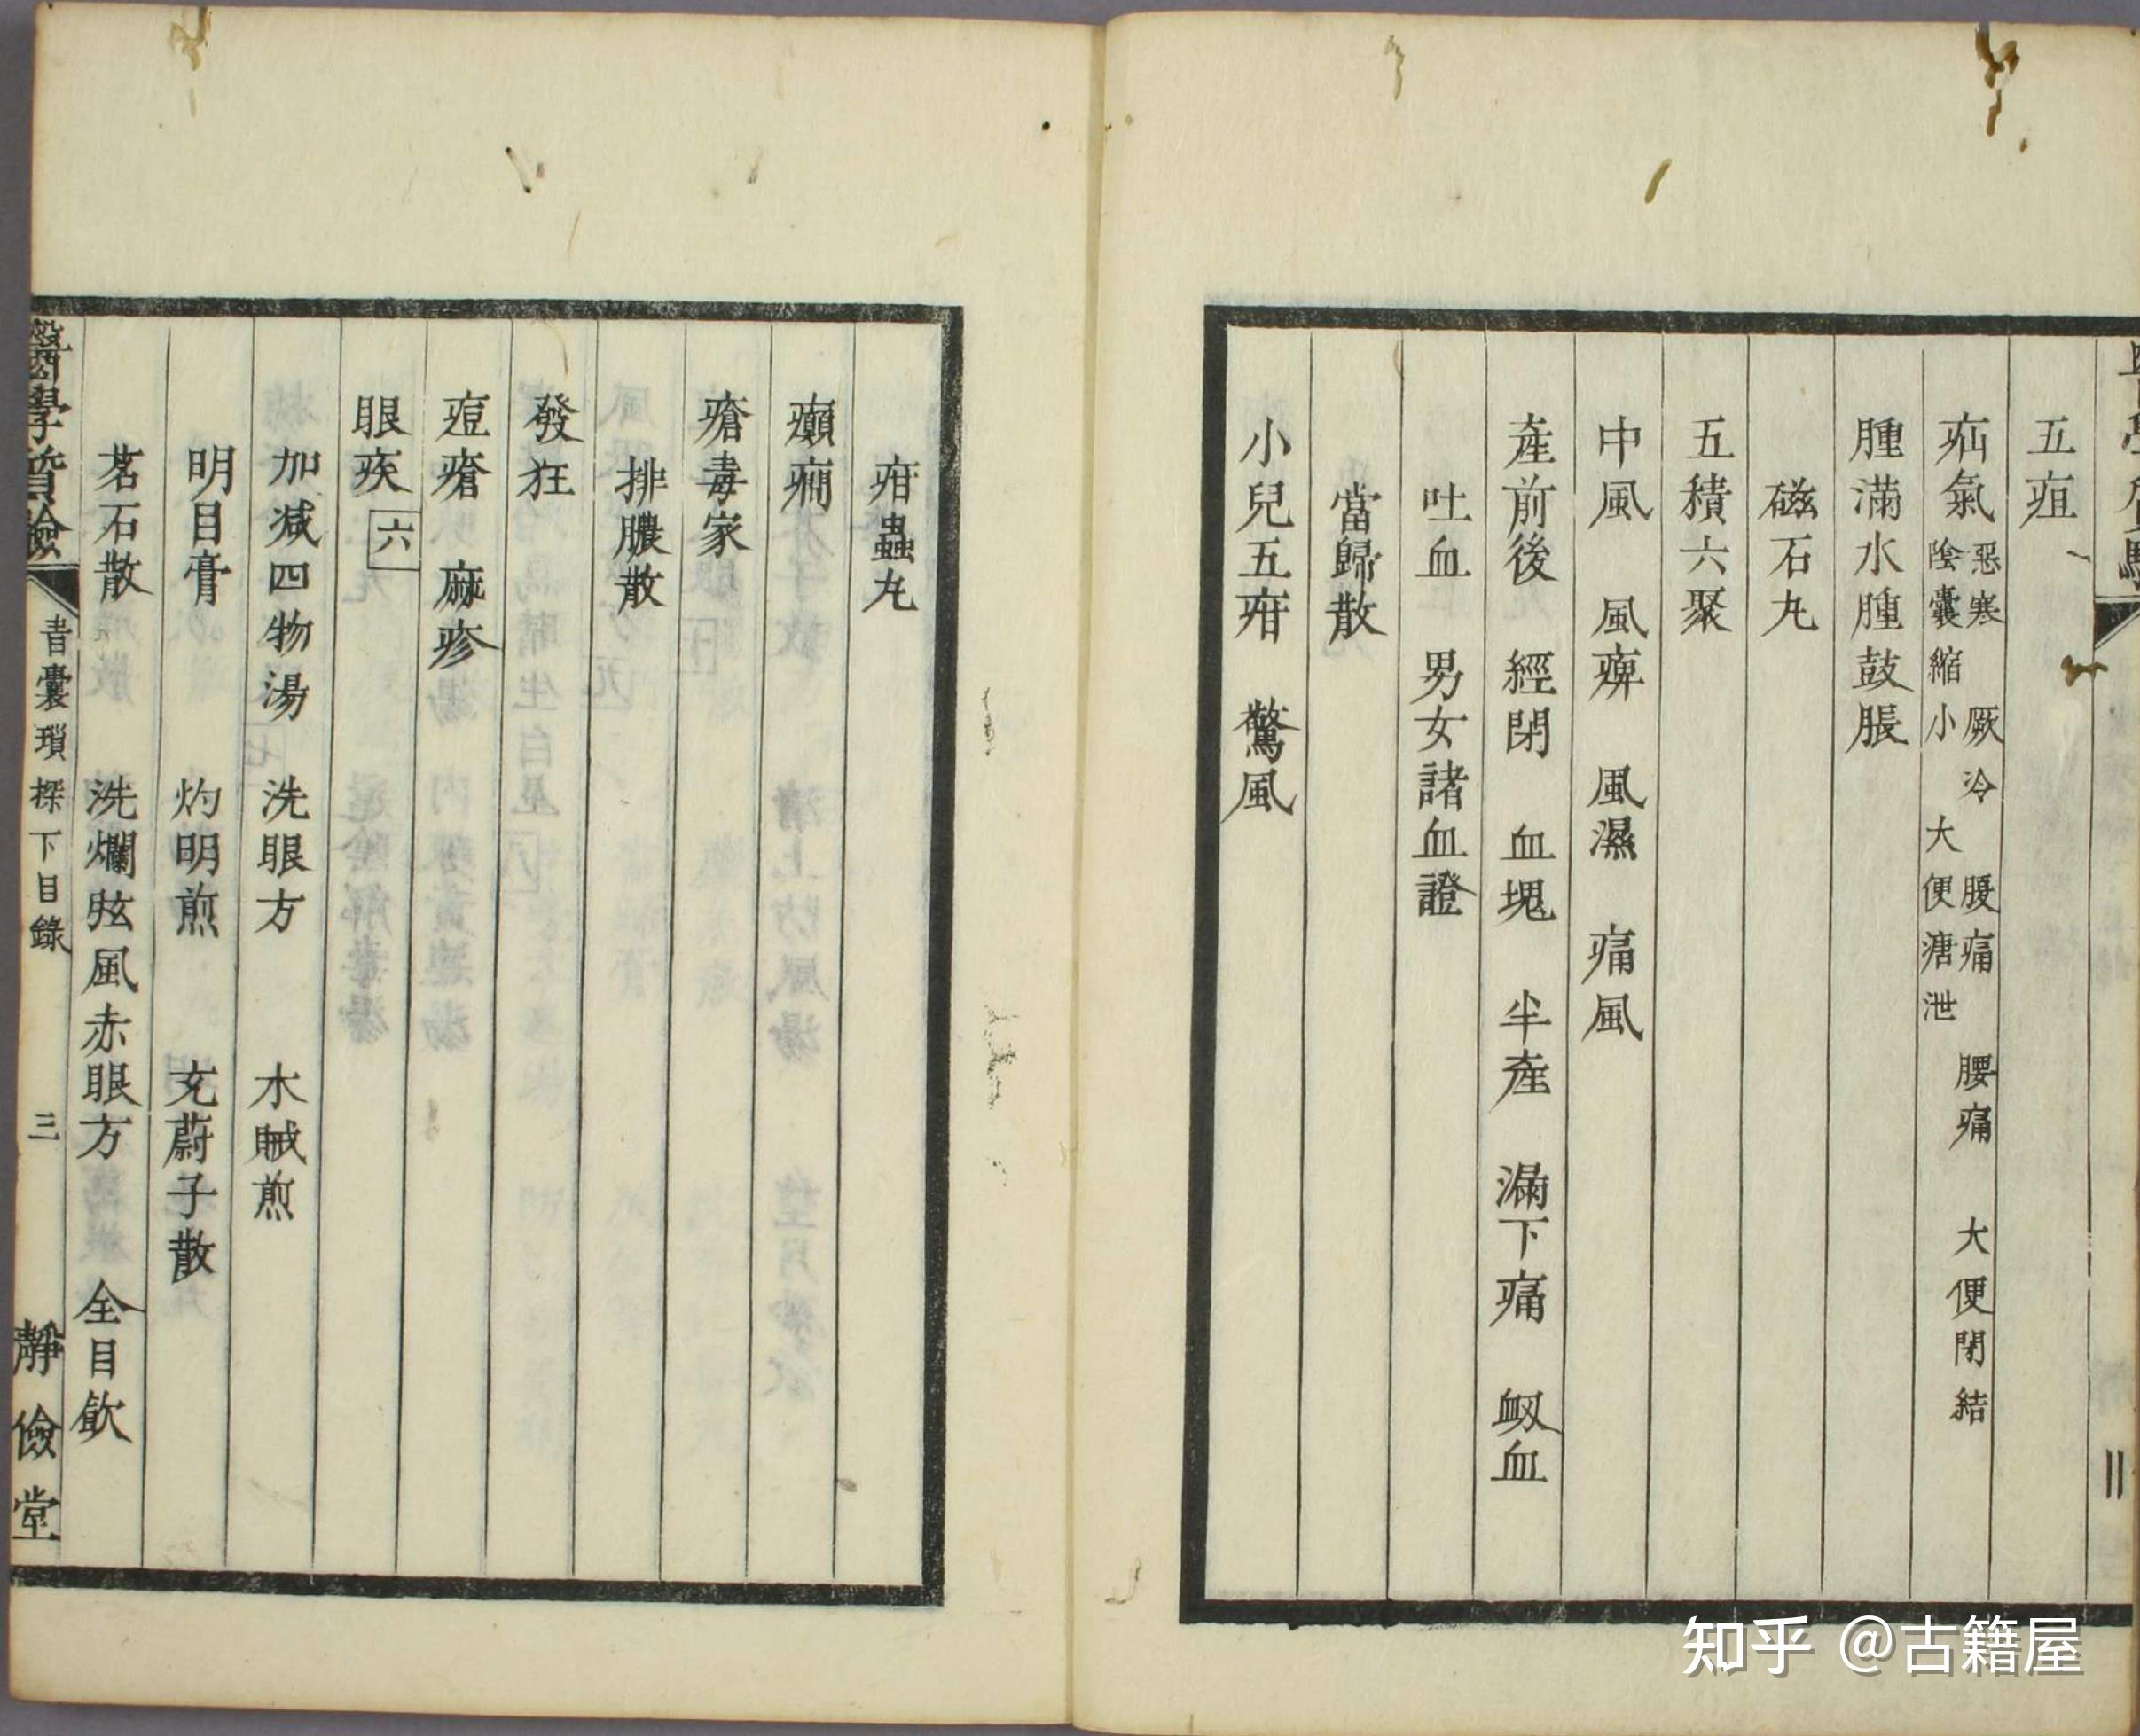 五疽
疝氣 惡寒 厥冷 腹痛 腰痛 大便閉結
陰囊縮小 大便溏泄
腫滿水腫鼓脹
磁石丸
五積六聚
中風 風痺 風濕 痛風
產前後 經閉 血塊 半產 漏下痛 衂血
吐血 男女諸血證
當歸散
小兒五疳 驚風
疳蟲丸
癲癇
瘡毒家
排膿散
發狂
痘瘡 麻疹
眼疾 六
加減四物湯 洗眼方 木賊煎
明目膏 灼明煎 充蔚子散
茗石散 洗爛眩風赤眼方 全目飲
醫學質驗 青囊瑣探下目錄 三 靜儉堂
知乎 @古籍屋